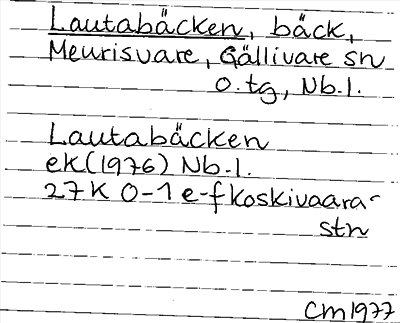 Lautabäcken, bäck,
Meurisvare, Gällivare sn
o. tg, Nb.l.
Lautabäcken
ek(1976) Nb.l.
27K 0-1 e-f koskivaara-
stn
CM1977